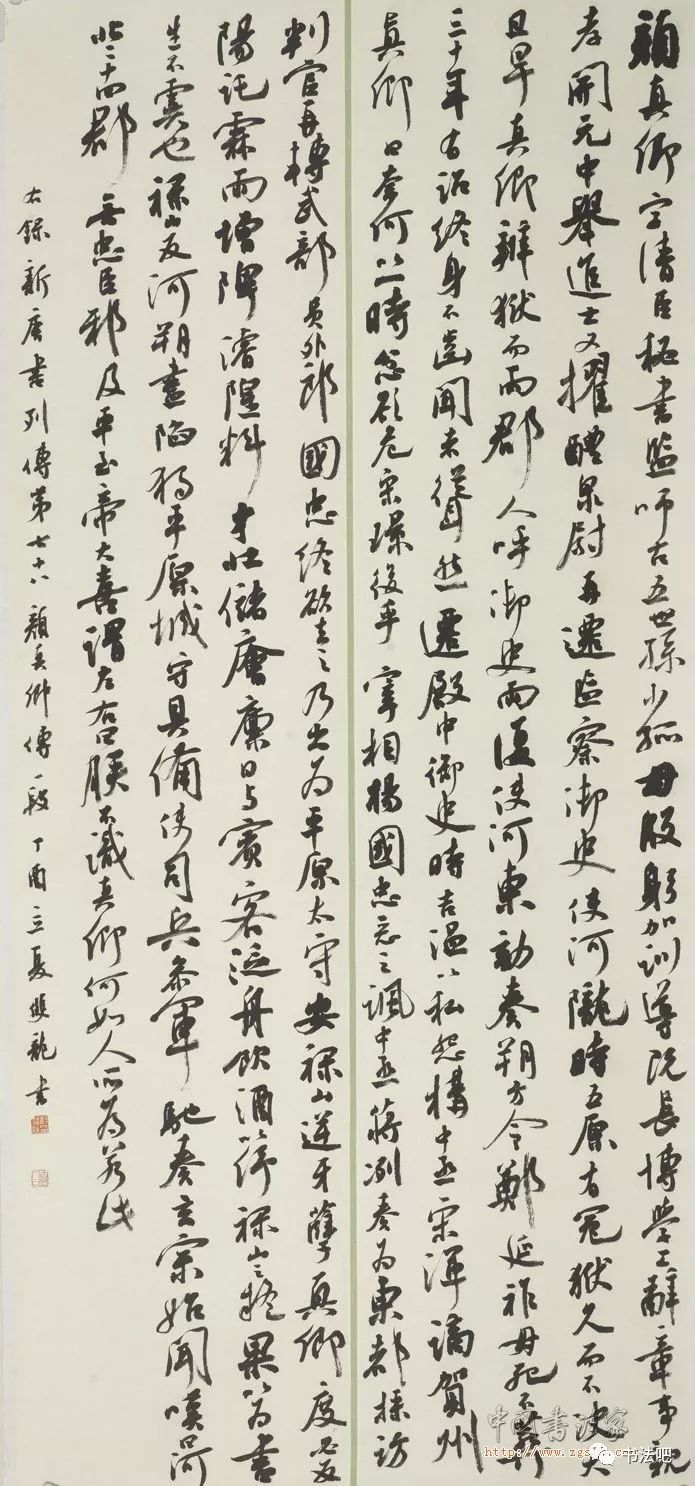 顏真卿字清臣秘書監師古五世孫少孤母殷躬加訓導既長博學工辭章事親
孝開元中舉進士又擢醴泉尉再遷監察御史使河隴時五原有冤獄久而不決天
且旱真卿辨獄而雨郡人呼御史雨復使河東劾奏朔方令鄭延祚母死不葬
三十年有詔終身不齒聞者聳然遷殿中御史時吉溫以私怨構中丞宋渾謫賀州
真卿曰奈何以一時忿欲危宋璟後乎宰相楊國忠惡之諷中丞蔣冽奏為東都採訪
判官再轉武部員外郎國忠終欲去之乃出為平原太守安祿山逆牙孽真卿度必反
陽託霖雨增陴濬隍料才壯儲廥廩日與賓客泛舟飲酒以紓祿山之疑果以為書
生不虞也祿山反河朔盡陷獨平原城守具備使司兵參軍馳奏玄宗始聞嘆曰河
北二十四郡無忠臣邪及平至帝大喜謂左右曰朕不識真卿何如人所為若此
右錄新唐書列傳第七十八顏真卿傳一段丁酉立夏龍書
中国书法家
书法吧